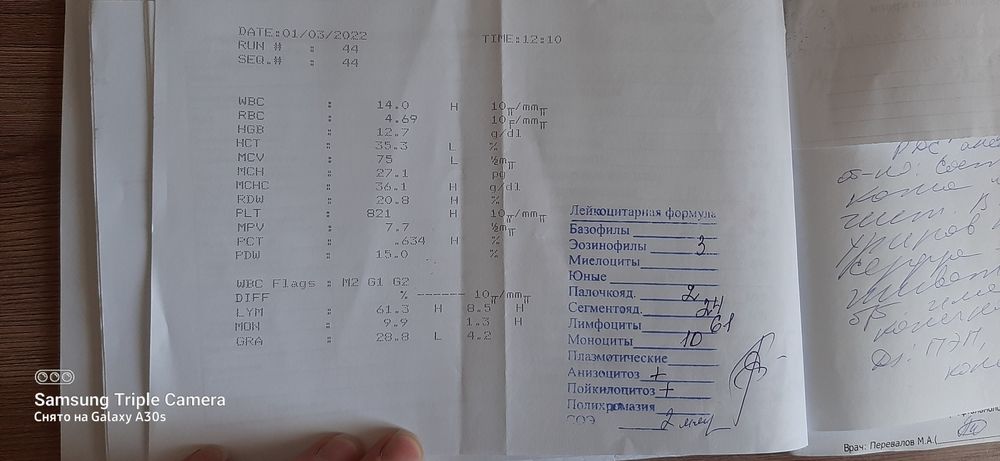 DATE:01/03/2022 TIME:12:10
RUN # : 44
SEQ.# : 44
WBC : 14.0 H 10π/mmπ
RBC : 4.69 10F/mmπ
HGB : 12.7 g/dl
HCT : 35.3 L %
MCV : 75 L ½mπ
MCH : 27.1 pg
MCHC : 36.1 H g/dl
RDW : 20.8 H %
PLT : 821 H 10π/mmπ
MPV : 7.7 ½mπ
PCT : .634 H %
PDW : 15.0 %
WBC Flags : M2 G1 G2
DIFF % ------ 10π/mmπ
LYM : 61.3 H 8.5 H
MON : 9.9 1.3 H
GRA : 28.8 L 4.2
Лейкоцитарная формула
Базофилы
Эозинофилы 3
Миелоциты
Юные
Палочкояд. 2
Сегментояд. 24
Лимфоциты 61
Моноциты 10
Плазмотические
Анизоцитоз +
Пойкилоцитоз +
Полихромазия
СОЭ 2 мм/ч
Врач: Перевалов М.А.(
Samsung Triple Camera
Снято на Galaxy A30s